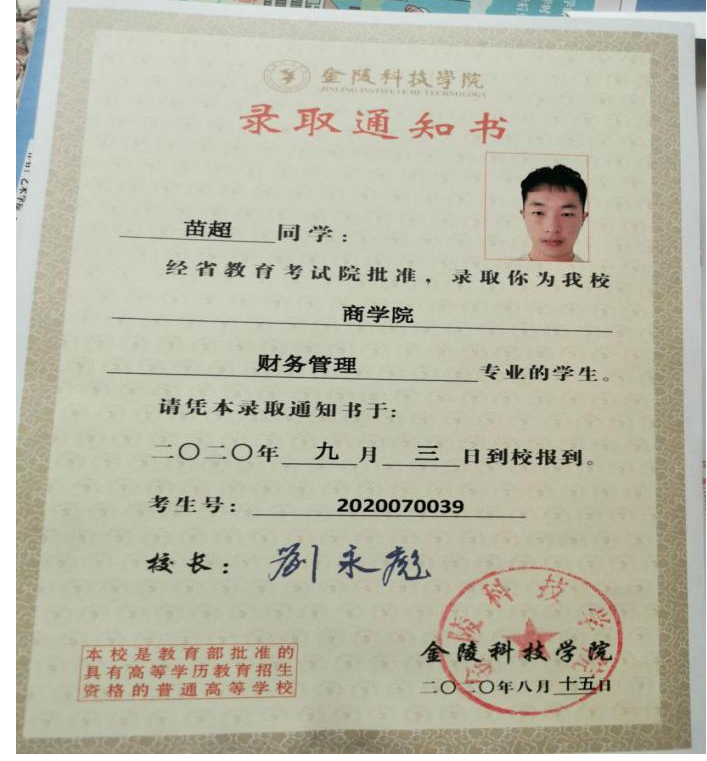 金陵科技学院
JINLING INSTITUTE OF TECHNOLOGY
录取通知书
苗超 同学：
经省教育考试院批准，录取你为我校
商学院
财务管理 专业的学生。
请凭本录取通知书于：
二〇二〇年 九 月 三 日到校报到。
考生号： 2020070039
校长： 刘永彪
金陵科技学院
本校是教育部批准的
具有高等学历教育招生
资格的普通高等学校
金陵科技学院
二〇二〇年八月十五日